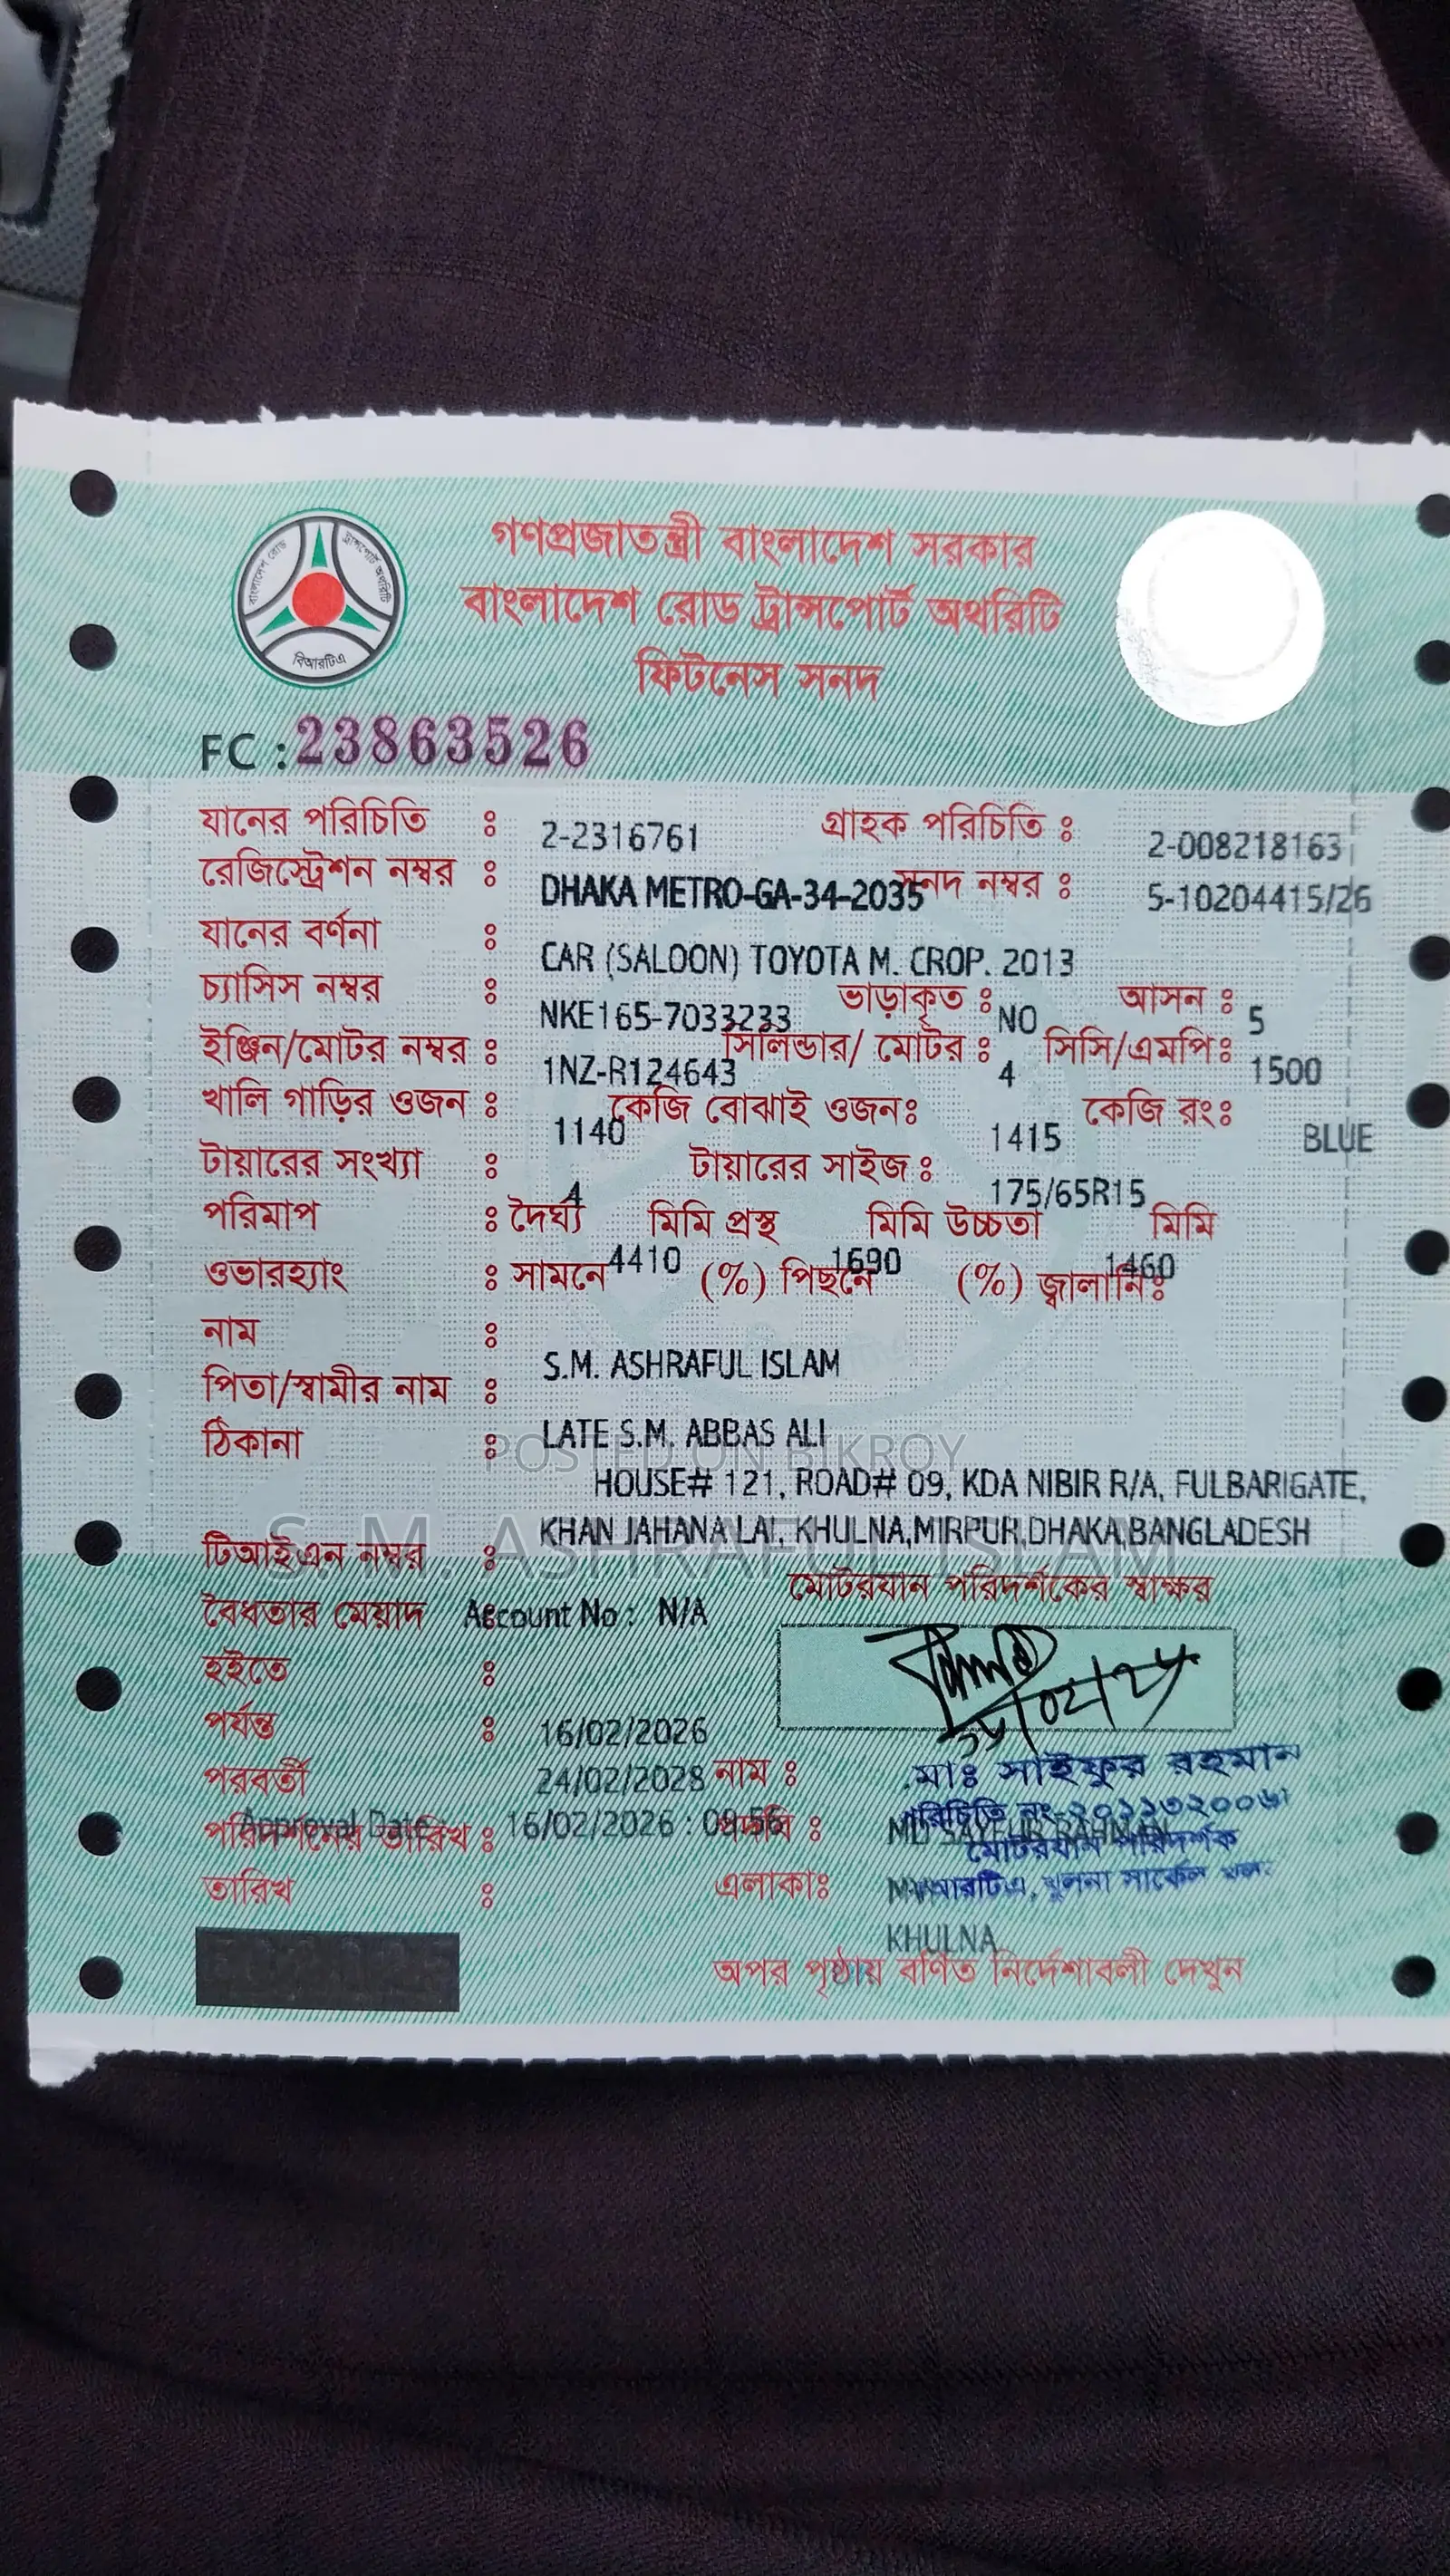 গণপ্রজাতন্ত্রী বাংলাদেশ সরকার
বাংলাদেশ রোড ট্রান্সপোর্ট অথরিটি
বিআরটিএ
ফিটনেস সনদ
FC : 23863526
যানের পরিচিতি : 2-2316761 গ্রাহক পরিচিতি : 2-008218163
রেজিস্ট্রেশন নম্বর : DHAKA METRO-GA-34-2035 সনদ নম্বর : 5-10204415/26
যানের বর্ণনা : CAR (SALOON) TOYOTA M. CROP. 2013
চ্যাসিস নম্বর : NKE165-7033233 ভাড়াকৃত : NO আসন : 5
ইঞ্জিন/মোটর নম্বর : 1NZ-R124643 সিলিন্ডার/ মোটর : 4 সিসি/এমপি : 1500
খালি গাড়ির ওজন : 1140 কেজি বোঝাই ওজন : 1415 কেজি রং : BLUE
টায়ারের সংখ্যা : 4 টায়ারের সাইজ : 175/65R15
পরিমাপ : দৈর্ঘ্য 4410 মিমি প্রস্থ 1690 মিমি উচ্চতা 1460 মিমি
ওভারহ্যাং : সামনে (%) পিছনে (%) জ্বালানি :
নাম : S.M. ASHRAFUL ISLAM
পিতা/স্বামীর নাম : LATE S.M. ABBAS ALI
POSTED ON BIKROY
ঠিকানা : HOUSE# 121, ROAD# 09, KDA NIBIR R/A, FULBARIGATE,
KHAN JAHANA LAI, KHULNA,MIRPUR,DHAKA,BANGLADESH
S. M. ASHRAFUL ISLAM
টিআইএন নম্বর :
মোটরযান পরিদর্শকের স্বাক্ষর
বৈধতার মেয়াদ Account No : N/A
হইতে : 16/02/2026
পর্যন্ত : 24/02/2028
নাম : মোঃ সাইফুর রহমান
পরবর্তী
পরিদর্শনের তারিখ :
Approval Date 16/02/2026 :
পদবি : MD SAYFUR RAHMAN
পরিচিতি নং-
মোটরযান পরিদর্শক
তারিখ :
এলাকা : খুলনা সার্কেল
KHULNA
অপর পৃষ্ঠায় বর্ণিত নির্দেশাবলী দেখুন